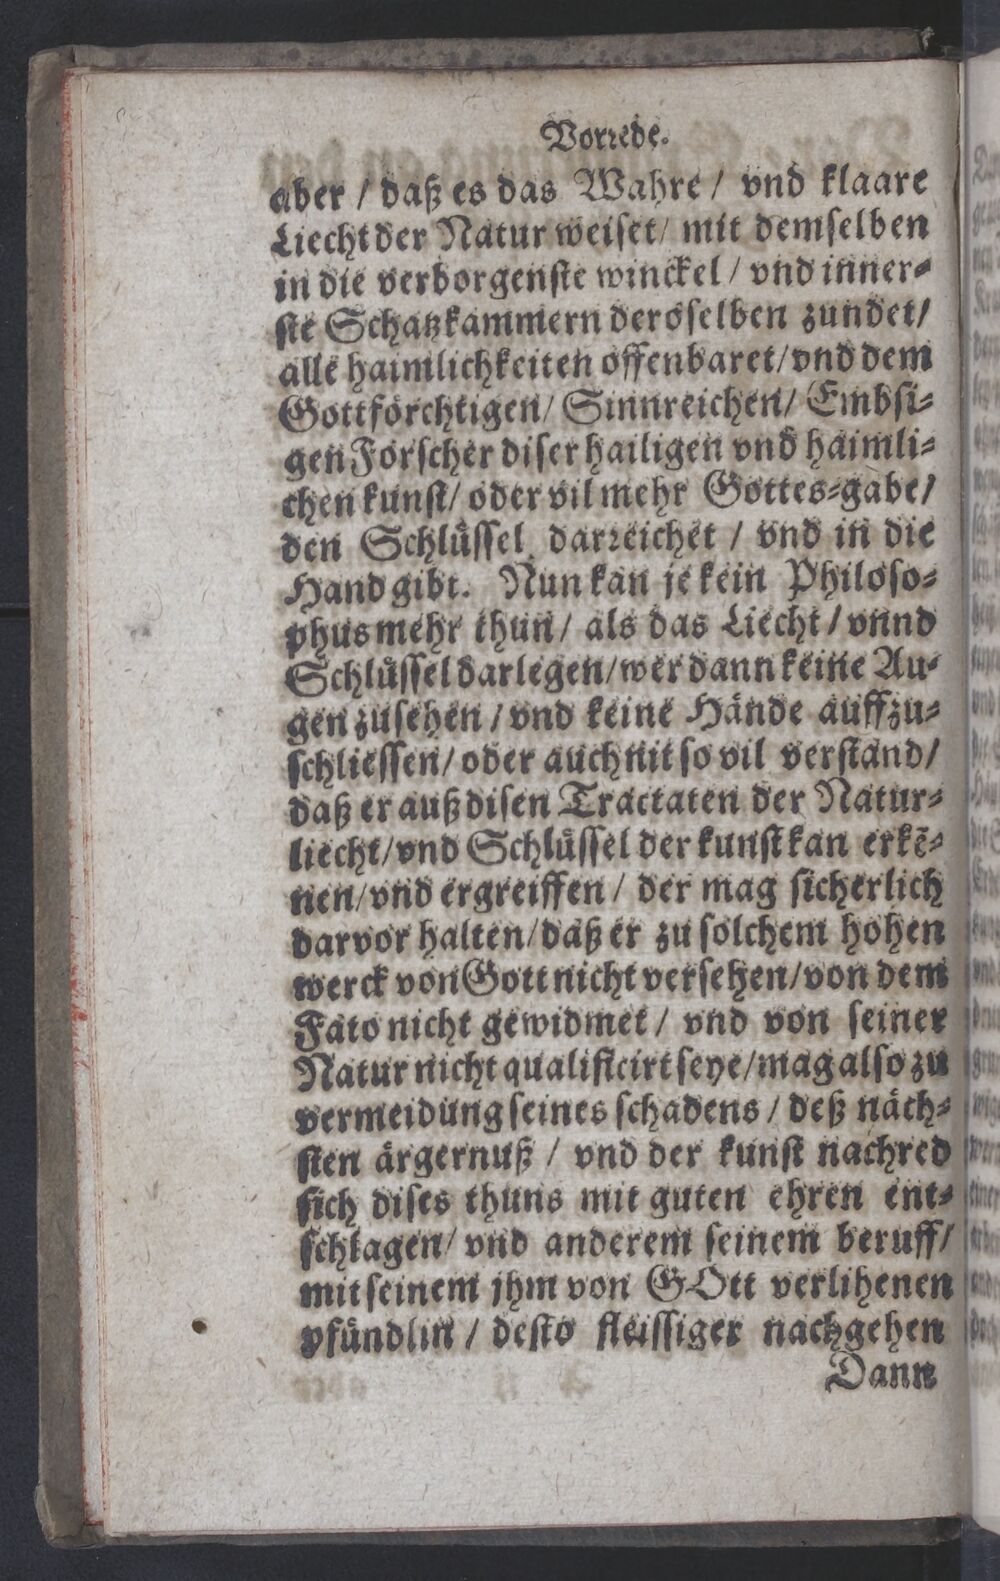 Vorrede.
aber / daß es das Wahre / vnd klaare
Liecht der Natur weiset / mit demselben
in die verborgenste winckel / vnd inner-
ste Schatzkammern deroselben zundet /
alle haimlichkeiten offenbaret / vnd dem
Gottförchtigen / Sinnreichen / Embsi-
gen Forscher diser hailigen vnd haimli-
chen kunst / oder vil mehr Gottes-gabe /
den Schlüssel darreichet / vnd in die
Hand gibt. Nun kan je kein Philoso-
phus mehr thun / als das Liecht / vnnd
Schlüssel darlegen / wer dann keine Au-
gen zusehen / vnd keine Hände auffzu-
schliessen / oder auch nit so vil verstand /
daß er auß disen Tractaten der Natur-
liecht / vnd Schlüssel der kunst kan erkē-
nen / vnd ergreiffen / der mag sicherlich
darvor halten / daß er zu solchem hohen
werck von Gott nicht versehen / von dem
Fato nicht gewidmet / vnd von seiner
Natur nicht qualificirt seye / mag also zu
vermeidung seines schadens / deß näch-
sten ärgernuß / vnd der kunst nachred
sich dises thuns mit guten ehren ent-
schlagen / vnd anderem seinem beruff /
mit seinem jhm von GOtt verlihenen
pfündlin / desto fleissiger nachgehen
Dann